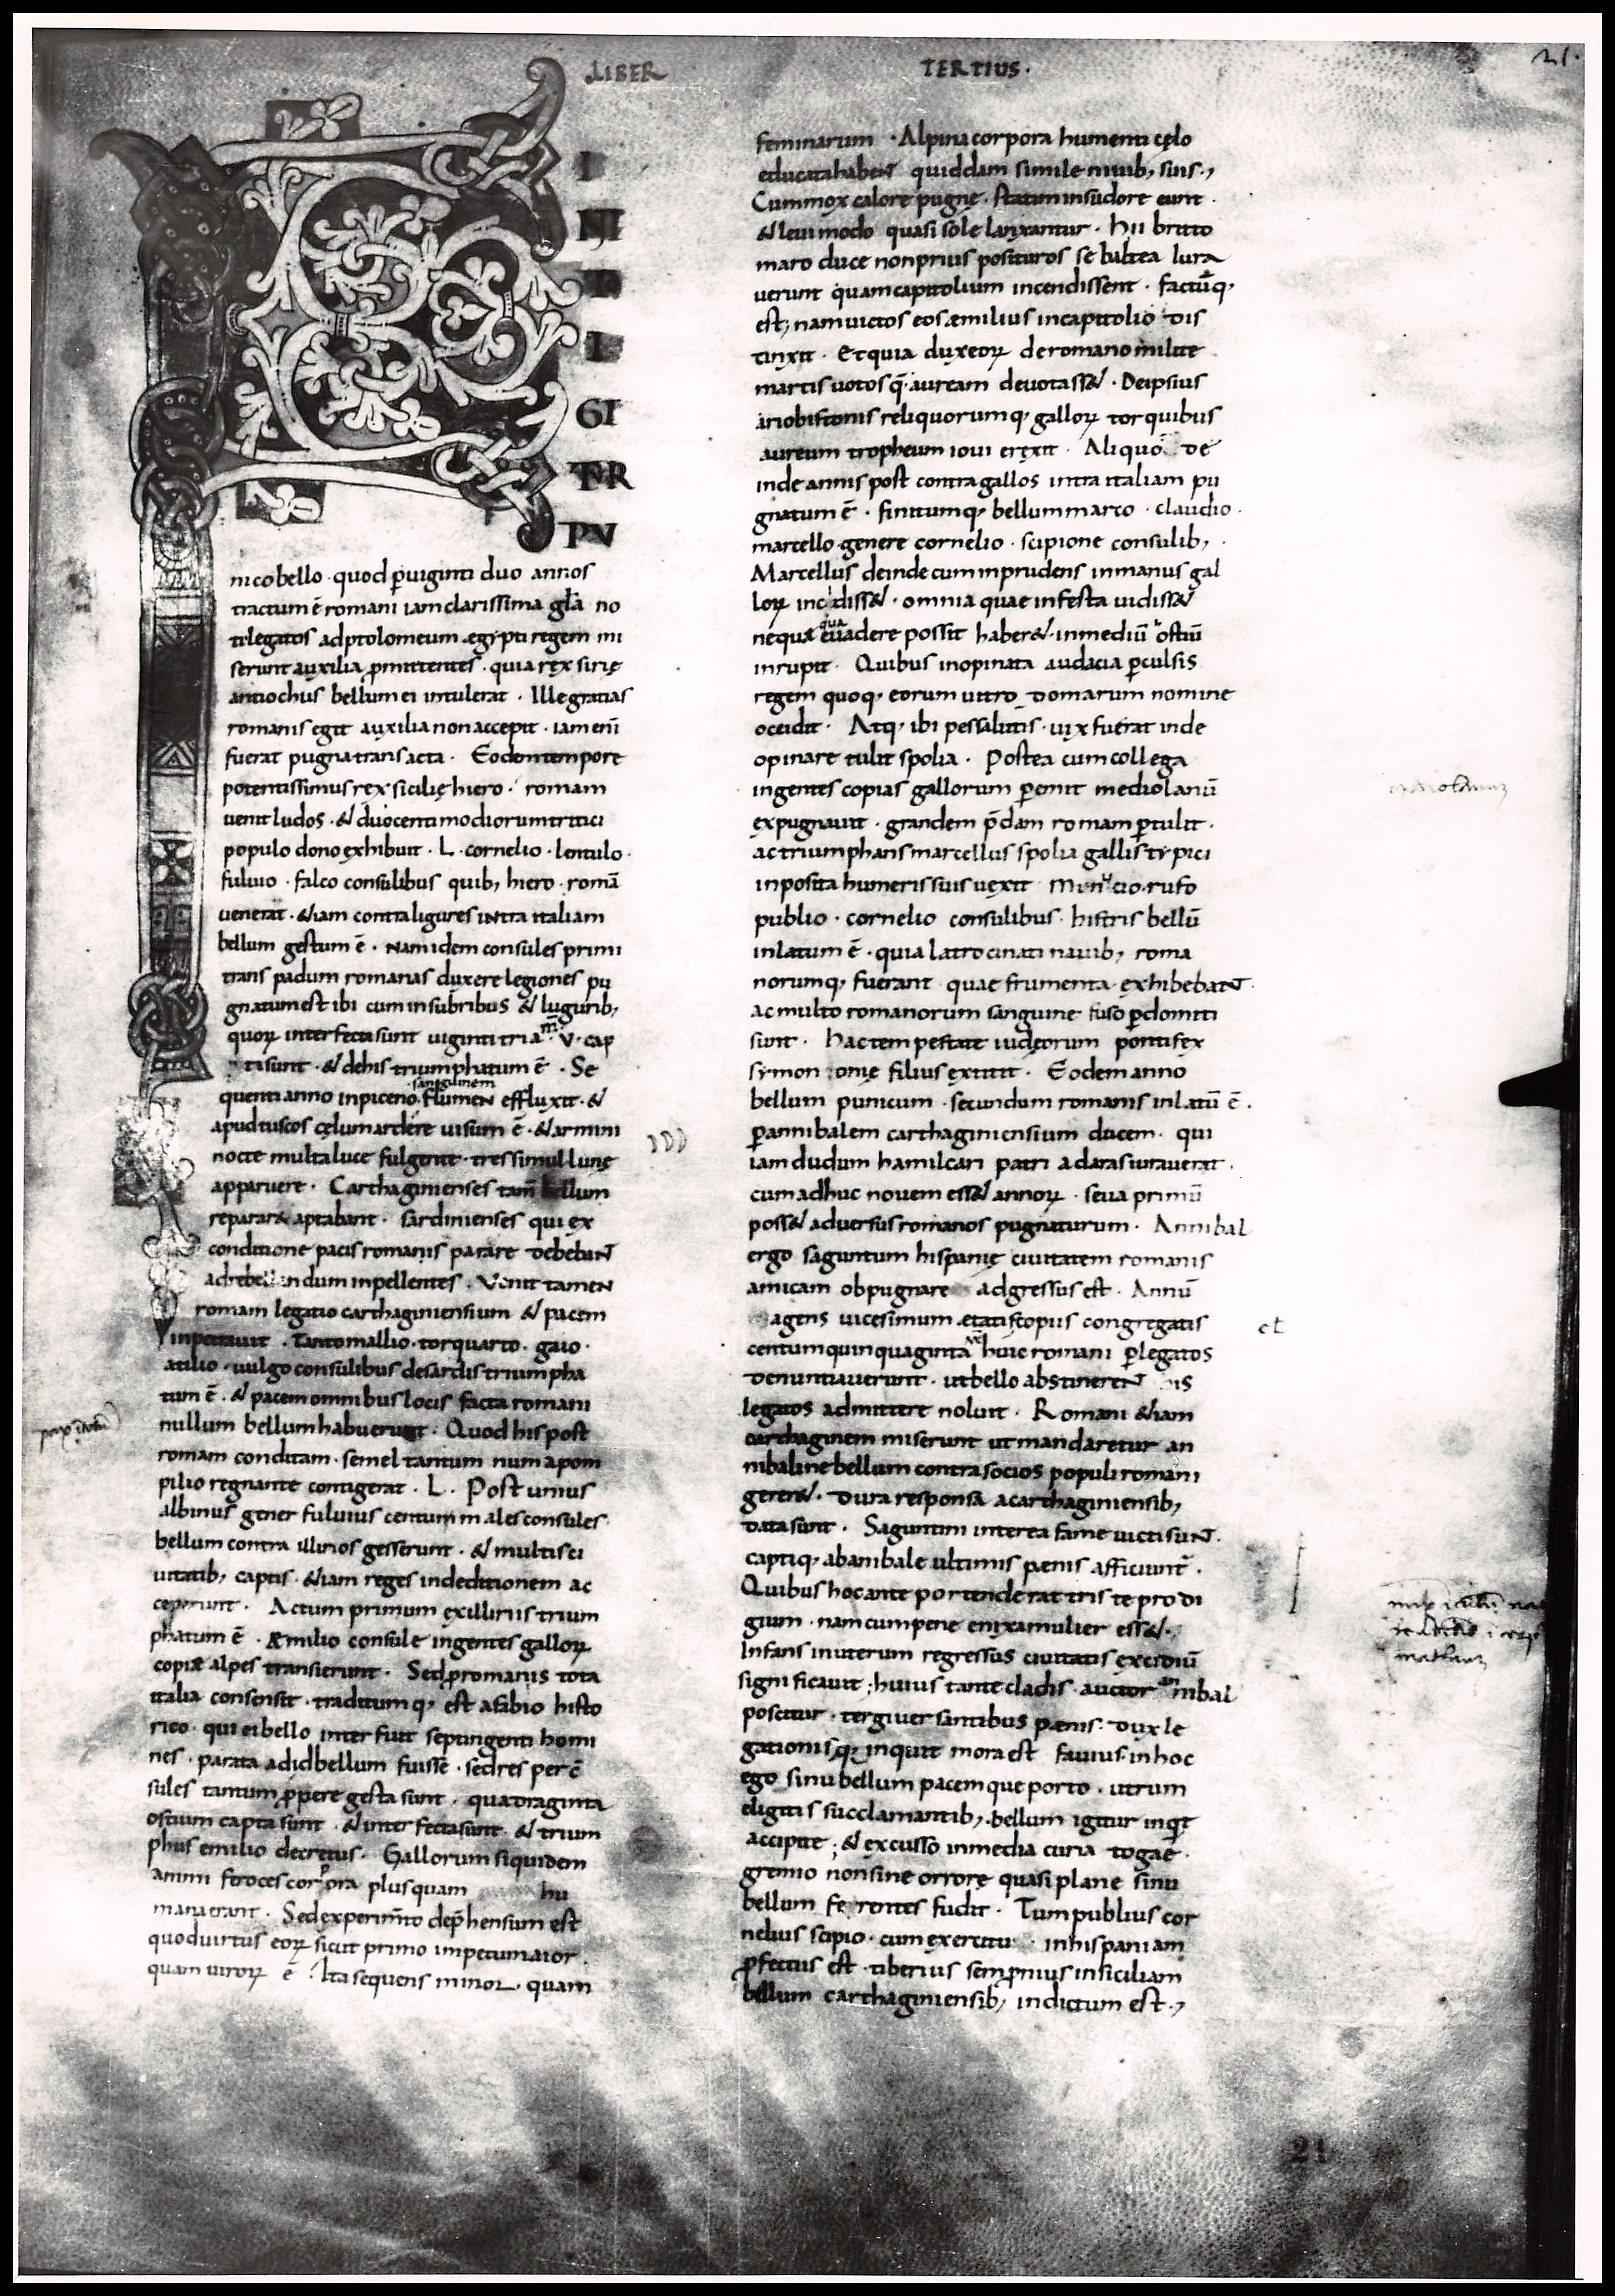 LIBER TERTIUS·
21·
F
I
NI
T
I
GI
TƐR
PV
nico bello · quod ꝑuiginti duo annos
tractum ē romani iam clarissima gła no
ti legatos ad ptolomeum ægypti regem mi
serunt auxilia ꝓmittentes · quia rex sirię
antiochus bellum ei intulerat · Ille gratias
romanis egit auxilia non accepit · iam eni̅
fuerat pugna transacta · Eodem tempore
potentissimus rex sicilię hiero · romam
uenit ludos · & ducenti modiorum tritici
populo dono exhibuit · L · cornelio · lentulo ·
fuluio · falco consulibus quib; hiero · romā
uenerat · &iam contra ligures intra italiam
bellum gestum ē · Nam idem consules primi
trans padum romanas duxere legiones pu
gnatum est ibi cum insubribus & ligurib;
quoꝝ interfecta sunt uiginti tria m̅ · V · cap
ti sunt · & de his triumphatum ē · Se
quenti anno in piceno · flumen sanguinem effluxit · &
apud tuscos cęlum ardere uisum ē · & armini
nocte multa luce fulgente · tres simul lunę
apparuere · Carthaginenses tam̅ bellum
reparare aptabant · sardinienses qui ex
conditione pacis romanis parare debebant
ad rebellandum inpellentes · Venit tamen
romam legatio carthaginiensium & pacem
inpetrauit · Tanto mallio · torquarto · gaio ·
atilio · uulgo consulibus de sardis triumpha
tum ē · & pacem omnibus locis facta romani
nullum bellum habuerunt · Quod his post
romam conditam · semel tantum numa pom
pilio regnante contigerat · L · Postumus
albinus gener fuluius centum males consules
bellum contra illirios gesserunt · & multis ci
uitatib; captis · &iam reges in deditionem ac
ceperunt · Actum primum ex illiriis trium
phatum ē · Æmilio consule ingentes galloꝝ
copiæ alpes transierunt · Sed ꝓ romanis tota
italia consensit · traditumq; est a fabio histo
rico · qui ei bello interfuit septingenti homi
nes · parata ad id bellum fuisse · sed res per c̅
sules tantum ꝓpere gesta sunt · quadraginta
ostium capta sunt · & interfecta sunt · & trium
phus emilio decretus · Gallorum siquidem
animi feroces corpora plusquam hu
mana erant · Sed experim̅to dep̅hensum est
quod uirtus eoꝝ sicut primo impetu maior
quam uiroꝝ ē · Ita sequens minor · quam
feminarum · Alpina corpora humenti cęlo
educata habent quiddam simile niuib; suis ·,
Cum mox calore pugnę · statim in sudore eunt ·
& leui modo quasi sole lanxantur · hii brito
maro duce non prius posituros se baltea iura
uerunt quam capitolium incendissent · factūq;
est; nam uictos eos æmilius in capitolio dis
tinxit · Et quia duxeoꝝ de romano milite
martis uotos q̅ · auream deuotass& · De ipsius
ariobistonis reliquorumq; galloꝝ torquibus
aureum tropheum ioui erexit · Aliquo de
inde annis post contra gallos intra italiam pu
gnatum ē · finitumq; bellum marco · claudio ·
marcello genere cornelio · scipione consulib; ·
Marcellus deinde cum inprudens in manus gal
loꝝ incidiss& · omnia quae infesta uidiss&
nequæ qua euadere possit haber& · in mediū ostiū
inrupit · Quibus inopinata audacia ꝑculsis
regem quoq; eorum uitro domarum nomine
occidit · Atq; ibi pessalutis · uix fuerat inde
opinare tulit spolia · Postea cum collega
ingentes copias gallorum ꝑemit mediolanū
expugnauit · grandem p̅dam romam ꝑtulit ·
ac triumphans marcellus spolia gallis typici
inposita humeris suis uexit Minucio · rufo
publio · cornelio consulibus · histris bellū
inlatum ē · quia latrocinati nauib; roma
norumq; fuerant quae frumenta exhibebant ·
ac multo romanorum sanguine fuso ꝑdomiti
sunt · hac tempestate iudęorum pontifex
symon onię filius extitit · Eodem anno
bellum punicum · secundum romanis inlatū ē ·
ꝑ annibalem carthaginiensium ducem · qui
iam dudum hamilcari patri ad aras iurauerat ·
cum adhuc novem ess& annoꝝ · seua primū
poss& aduersus romanos pugnaturum · Annibal
ergo saguntum hispanię ciuitatem romanis
amicam obpugnare adgressus est · Annū
agens uicesimum ętatis copiis congregatis et
centum quinquaginta huic romani ꝑ legatos
denuntiauerunt · ut bello abstinerent is
legatos admittere noluit · Romani &iam
carthaginem miserunt ut mandaretur an
nibali ne bellum contra socios populi romani
gerer& · dura responsa a carthaginiensib;
data sunt · Saguntini interea fame uicti sunt ·
captiq; ab anibale ultimis pœnis afficiunt̅ ·
Quibus hoc ante portenderat triste prodi
gium · nam cum pene enixa mulier ess& ·
Infans in uterum regressus ciuitatis excidiū
significauit ; huius tante cladis auctor annibal
poscitur · tergiuersantibus pænis · dux le
gationis q; inquit mora est fauius · in hoc
ego sinu bellum pacem que porto · utrum
eligitis succlamantib; · bellum igitur inq̅t
accipite ; & excusso in media curia togae
gremio non sine orrore quasi plane sinu
bellum ferentes fudit · Tum publius cor
nelius scipio · cum exercitu in hispaniam
ꝓfectus est · tiberius sempronius in siciliam
bellum carthaginiensib; indictum est ·,
21